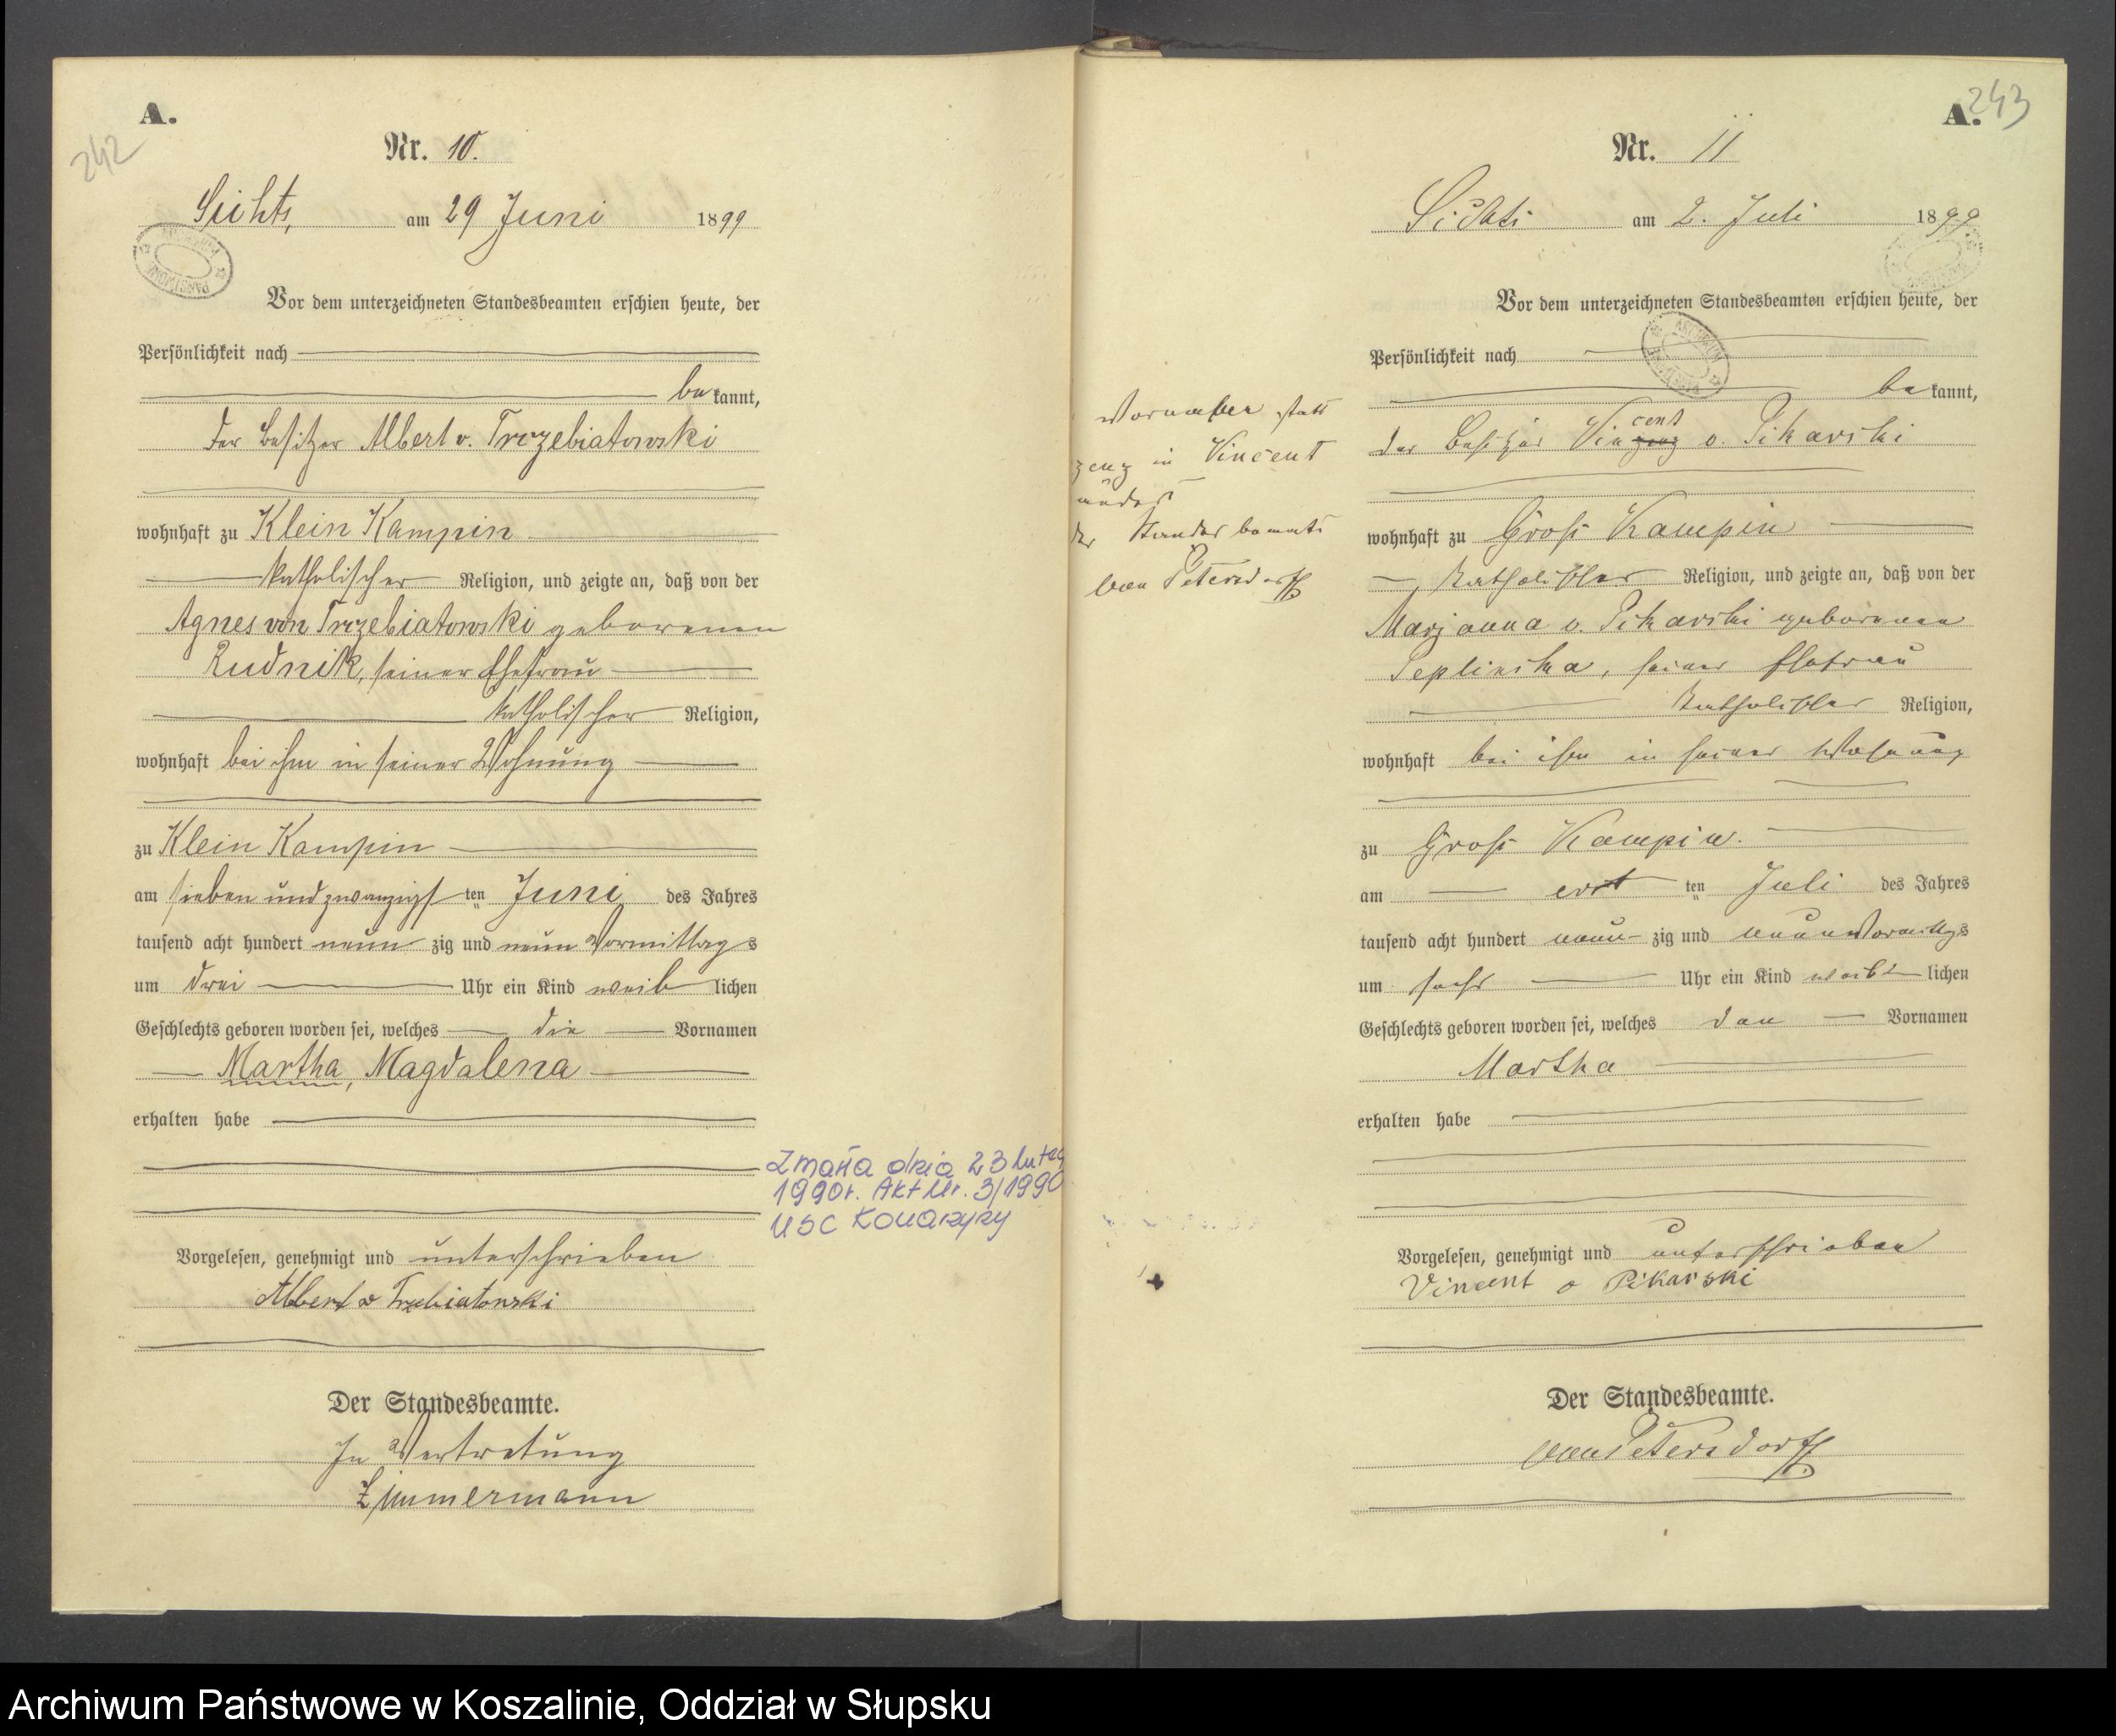 A.
242
Nr. 10.
Sichts, am 29 Juni 1899
Vor dem unterzeichneten Standesbeamten erschien heute, der
Persönlichkeit nach
bekannt,
der Besitzer Albert v. Trzebiatowski
wohnhaft zu Klein Kampin
katholischer Religion, und zeigte an, daß von der
Agnes von Trzebiatowski geborenen
Rudnik, seiner Ehefrau
katholischer Religion,
wohnhaft bei ihm in seiner Wohnung
zu Klein Kampin
am sieben und zwanzigsten Juni des Jahres
tausend acht hundert neunzig und neun Vormittags
um drei Uhr ein Kind weiblichen
Geschlechts geboren worden sei, welches die Vornamen
Martha, Magdalena
erhalten habe
Zmarła dnia 23 lutego
1990r. Akt Nr. 3/1990
USC Konarzyny
Vorgelesen, genehmigt und unterschrieben
Albert v Trzebiatowski
Der Standesbeamte.
In Vertretung
Zimmermann
A.
243
Nr. 11
Sichts am 2. Juli 1899
Vor dem unterzeichneten Standesbeamten erschien heute, der
Persönlichkeit nach
bekannt,
der Besitzer Vinzenz cent v. Pikarski
wohnhaft zu Groß Kampin
katholischer Religion, und zeigte an, daß von der
Marjanna v. Pikarski geborenen
Seplinska, seiner Ehefrau
katholischer Religion,
wohnhaft bei ihm in seiner Wohnung
zu Groß Kampin.
am ersten Juli des Jahres
tausend acht hundert neunzig und neun Vormittags
um sechs Uhr ein Kind weiblichen
Geschlechts geboren worden sei, welches den Vornamen
Martha
erhalten habe
Vorgelesen, genehmigt und unterschrieben
Vincent v Pikarski
Der Standesbeamte.
von Petersdorff
statt
zenz in Vincent
der Standesbeamte
von Petersdorff
Archiwum Państwowe w Koszalinie, Oddział w Słupsku